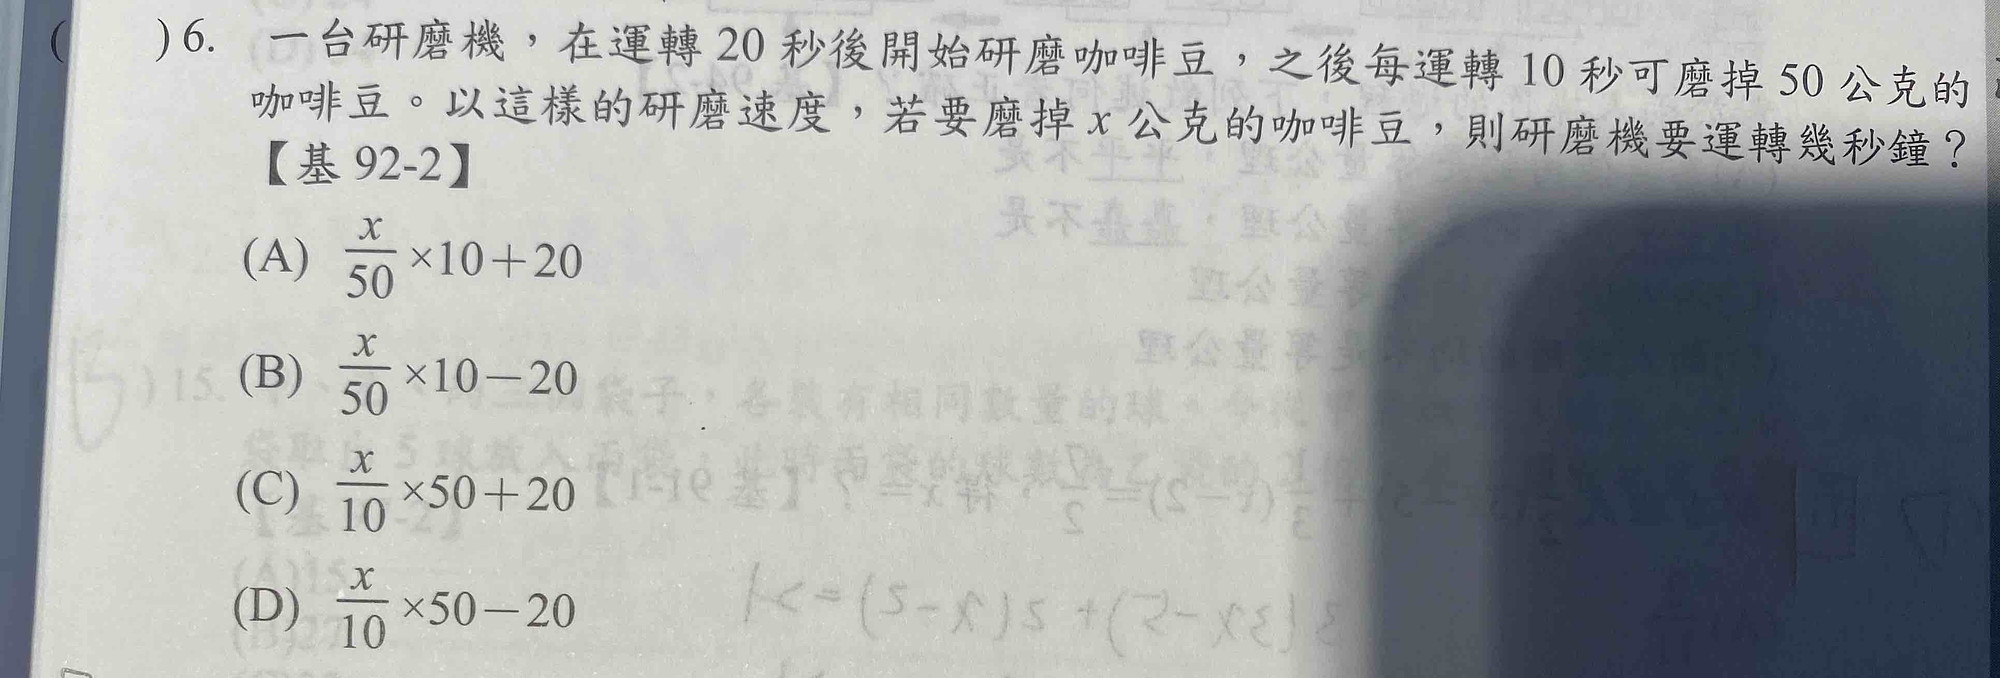 ( )6. 一台研磨機，在運轉 20 秒後開始研磨咖啡豆，之後每運轉 10 秒可磨掉 50 公克的
咖啡豆。以這樣的研磨速度，若要磨掉 x 公克的咖啡豆，則研磨機要運轉幾秒鐘？
【基 92-2】
(A) x/50 ×10＋20
(B) x/50 ×10－20
(C) x/10 ×50＋20
(D) x/10 ×50－20